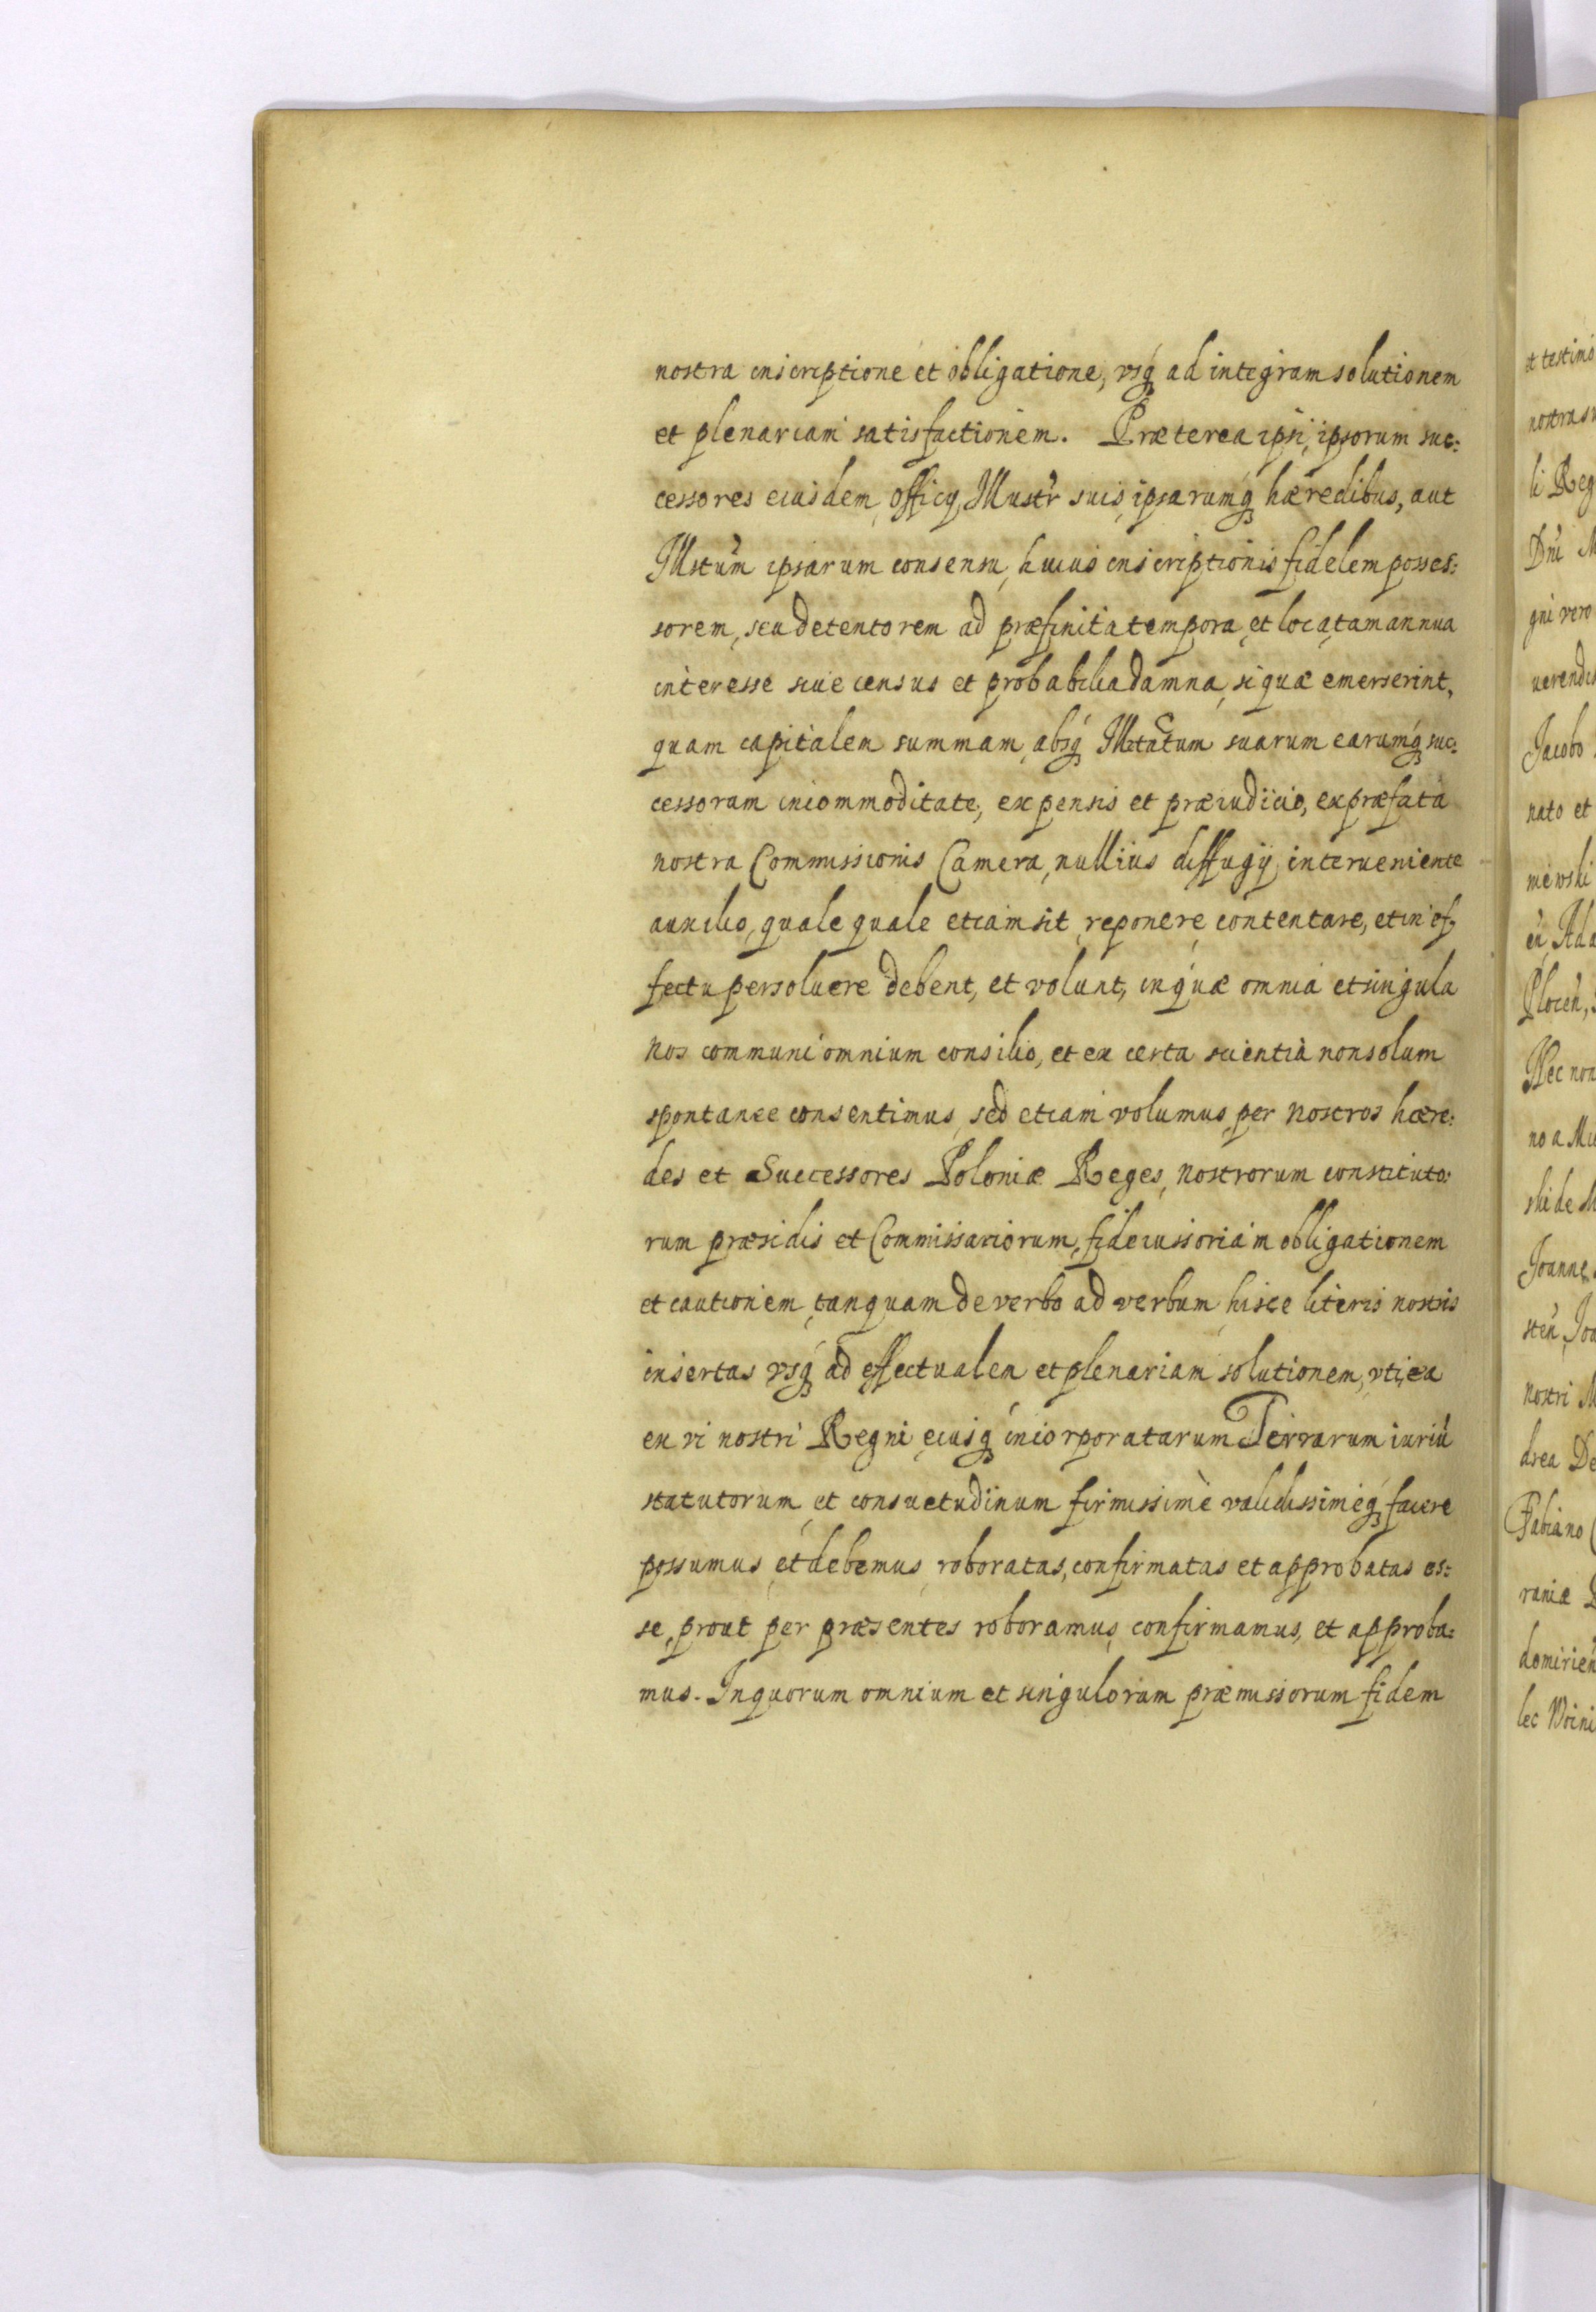 nostra inscriptione et obligatione, vsq́ ad integram solutionem
et plenariam satisfactionem. Præterea ipsi, ipsorum suc:
cessores eiusdem officij, Illustr suis, ipsarumq́ hæredibus, aut
Illstum ipsarum consensu, huius inscriptionis fidelem posses:
sorem, seu detentorem ad præfinita tempora, et loca, tam annua
interesse siue census et probabilia damna, si quæ emerserint,
quam capitalem summam, absq́ Illrtatum suarum earumq́ suc:
cessorum incommoditate, expensis et præiudicio, ex præfata
nostra Commissionis Camera, nullius diffugij interueniente
auxilio, quale quale etiam sit, reponere, contentare, et in ef,
fectu persoluere debent, et volunt, in quæ omnia et singula
nos communi omnium consilio, et ex certa scientia non solum
spontanee consentimus, sed etiam volumus, per nostros hære:
des et Successores Poloniæ Reges, nostrorum constituto:
rum præsidis et Commissariorum, fideiussoriam obligationem
et cautionem, tanquam de verbo ad verbum hisce literis nostris
insertas vsq́ ad effectualem et plenariam solutionem, vti, ea
ex vi nostri Regni eiusq́ incorporatarum Terrarum iuriū
statutorum, et consuetudinum firmissimè validissimeq́ facere
possumus, et debemus, roboratas, confirmatas et approbatas es:
se, prout per præsentes roboramus, confirmamus, et approba:
mus. In quorum omnium et singulorum præmissorum fidem
et testimo
li Reg
gni vero
uerendis
Jacobo
nato et
Nec non
Joanne
nostri M
drea De
Fabiano
raniæ